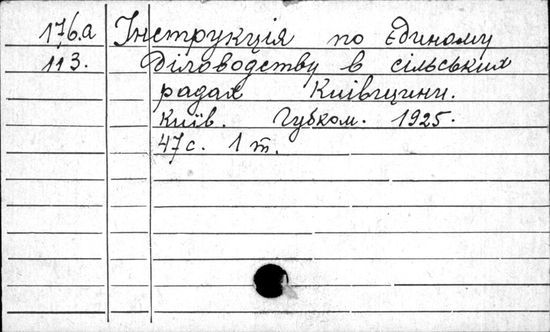 176.а Інструкція по єдиному
113. діловодству в сільських
радах Київщини.
Київ. Губком. 1925.
47с. 1 т.